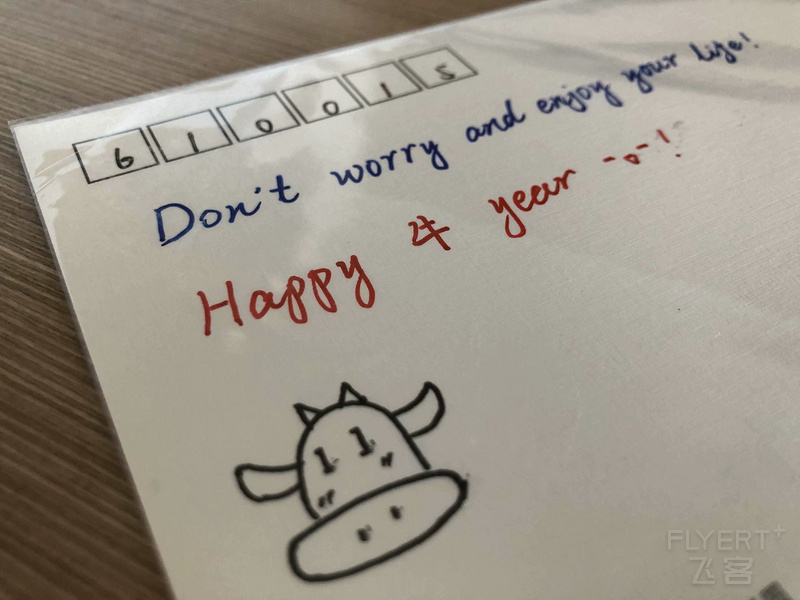 610015
Don't worry and enjoy your life!
Happy 牛 year -.-!
FLYERT+
飞客